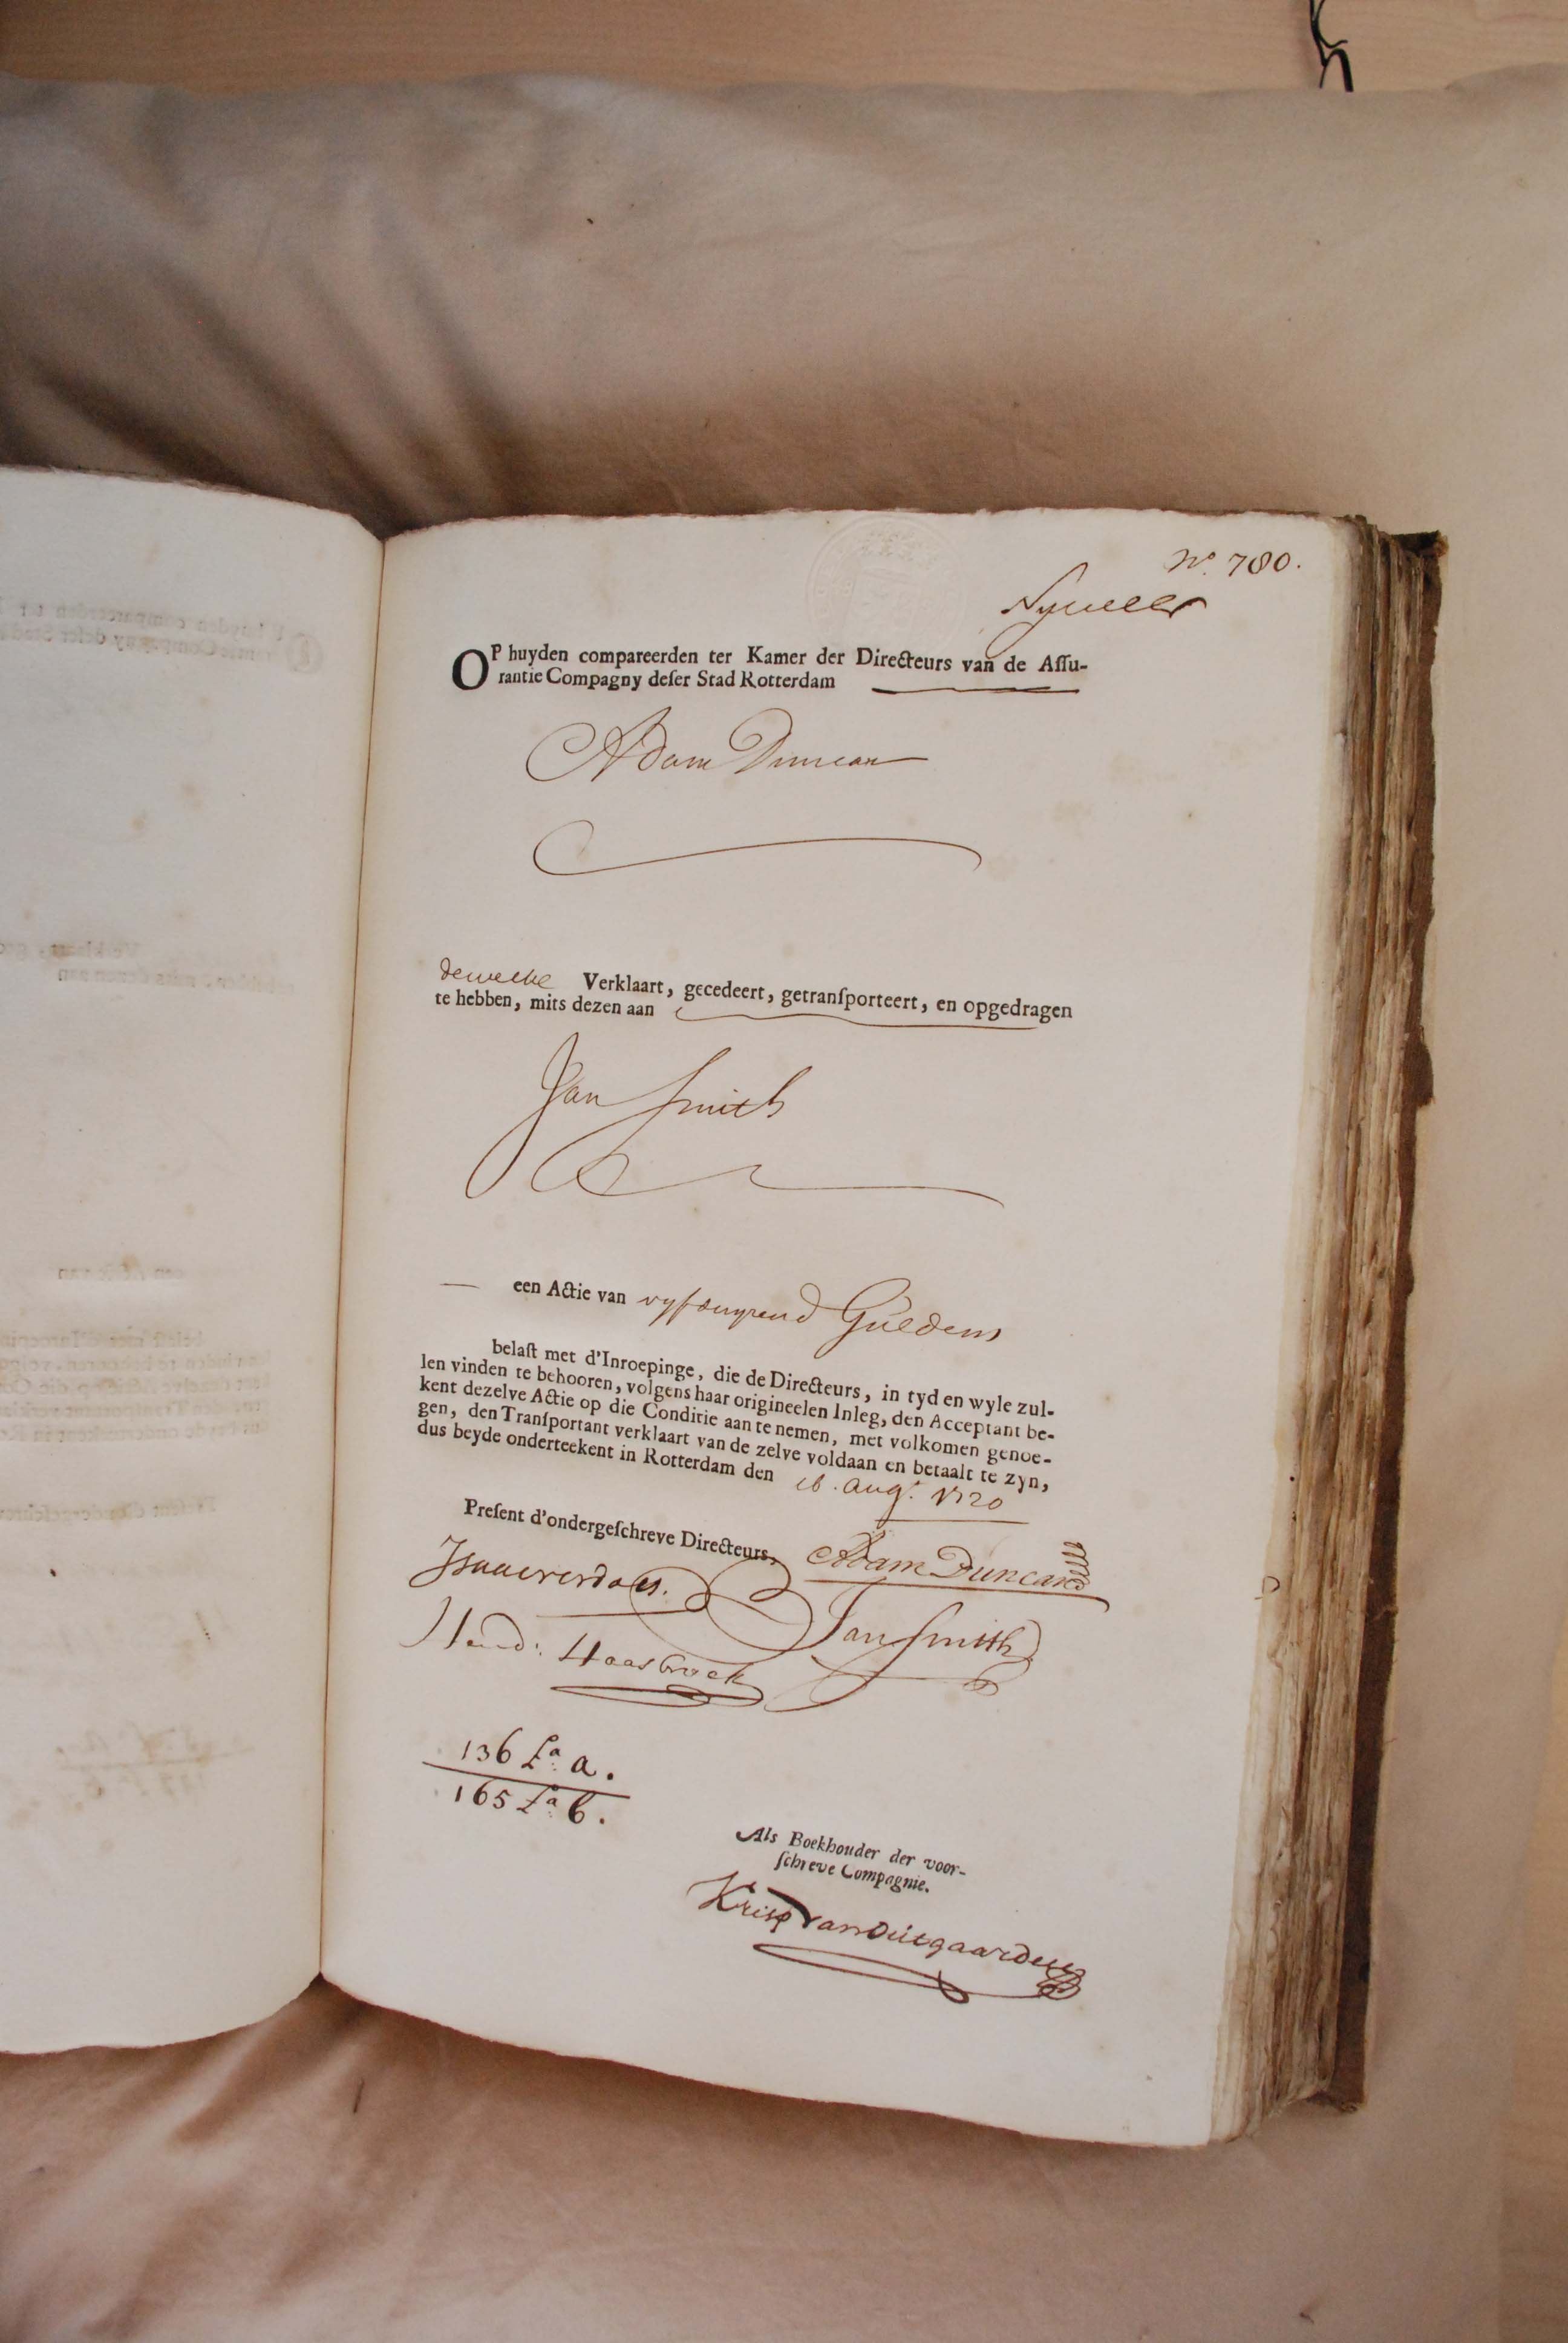 No. 780.
OP huyden compareerden ter Kamer der Directeurs van de Aſſu-
rantie Compagny deſer Stad Rotterdam
Adam Duncan
dewelke Verklaart, gecedeert, getranſporteert, en opgedragen
te hebben, mits dezen aan
Jan Smith
een Actie van vyfduyzend Guldens
belaſt met d'Inroepinge, die de Directeurs, in tyd en wyle zul-
len vinden te behooren, volgens haar origineelen Inleg, den Acceptant be-
kent dezelve Actie op die Conditie aan te nemen, met volkomen genoe-
gen, den Tranſportant verklaart van de zelve voldaan en betaalt te zyn,
dus beyde onderteekent in Rotterdam den 16. Aug. 1720
Preſent d'ondergeſchreve Directeurs.
Adam Duncan
Jan Smith
Hend: Haasbroek
136 La a.
165 La b.
Als Boekhouder der voor-
ſchreve Compagnie.